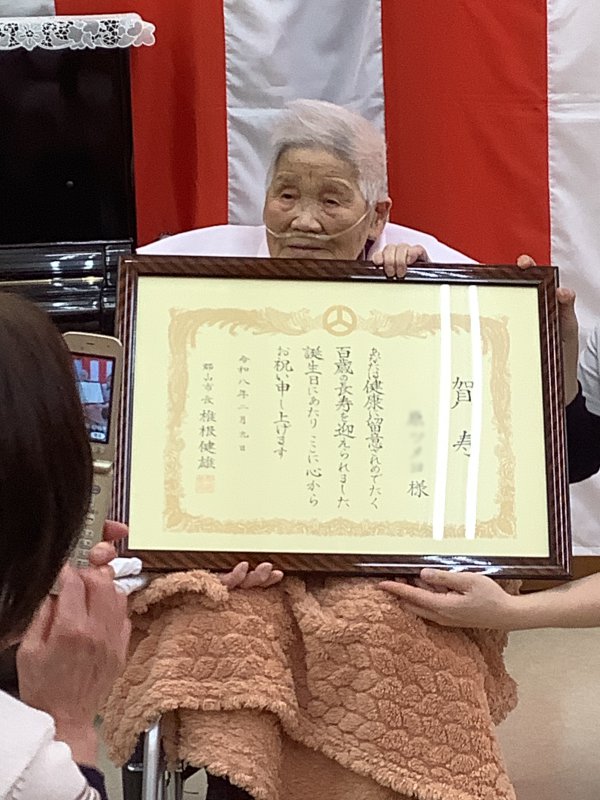 賀寿
様
あなたは健康に留意されめでたく
百歳の長寿を迎えられました
誕生日にあたり ここに心から
お祝い申し上げます
令和八年二月九日
郡山市長 椎根健雄